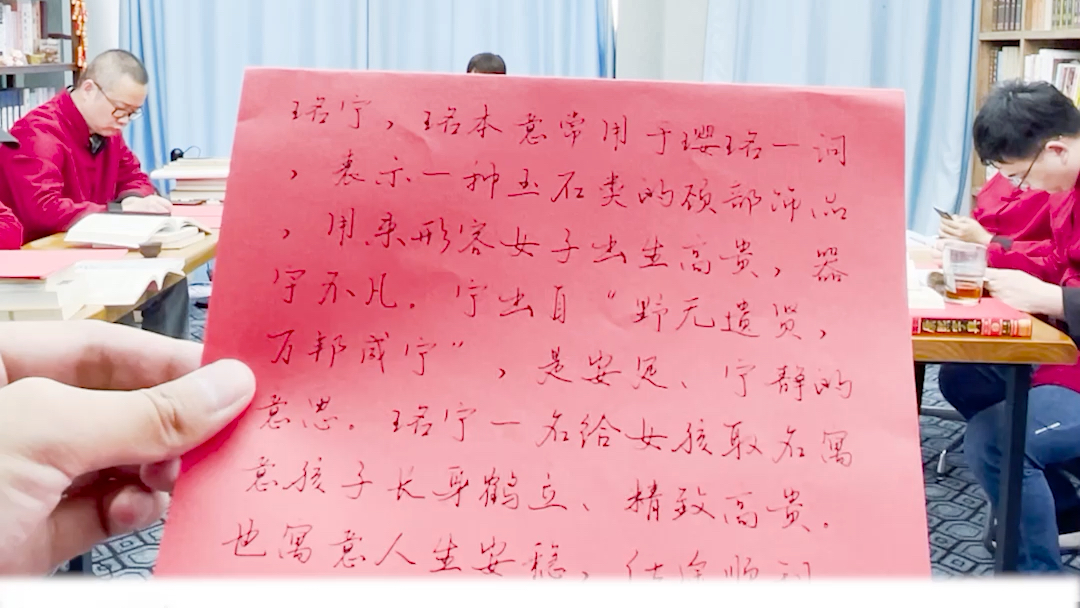 珺宁，珺本意常用于璎珺一词
，表示一种玉石类的颈部饰品
，用来形容女子出生高贵，器
宇不凡。宁出自“野无遗贤，
万邦咸宁”，是安定、宁静的
意思。珺宁一名给女孩取名寓
意孩子长身鹤立、精致高贵。
也寓意人生安稳，仕途顺利